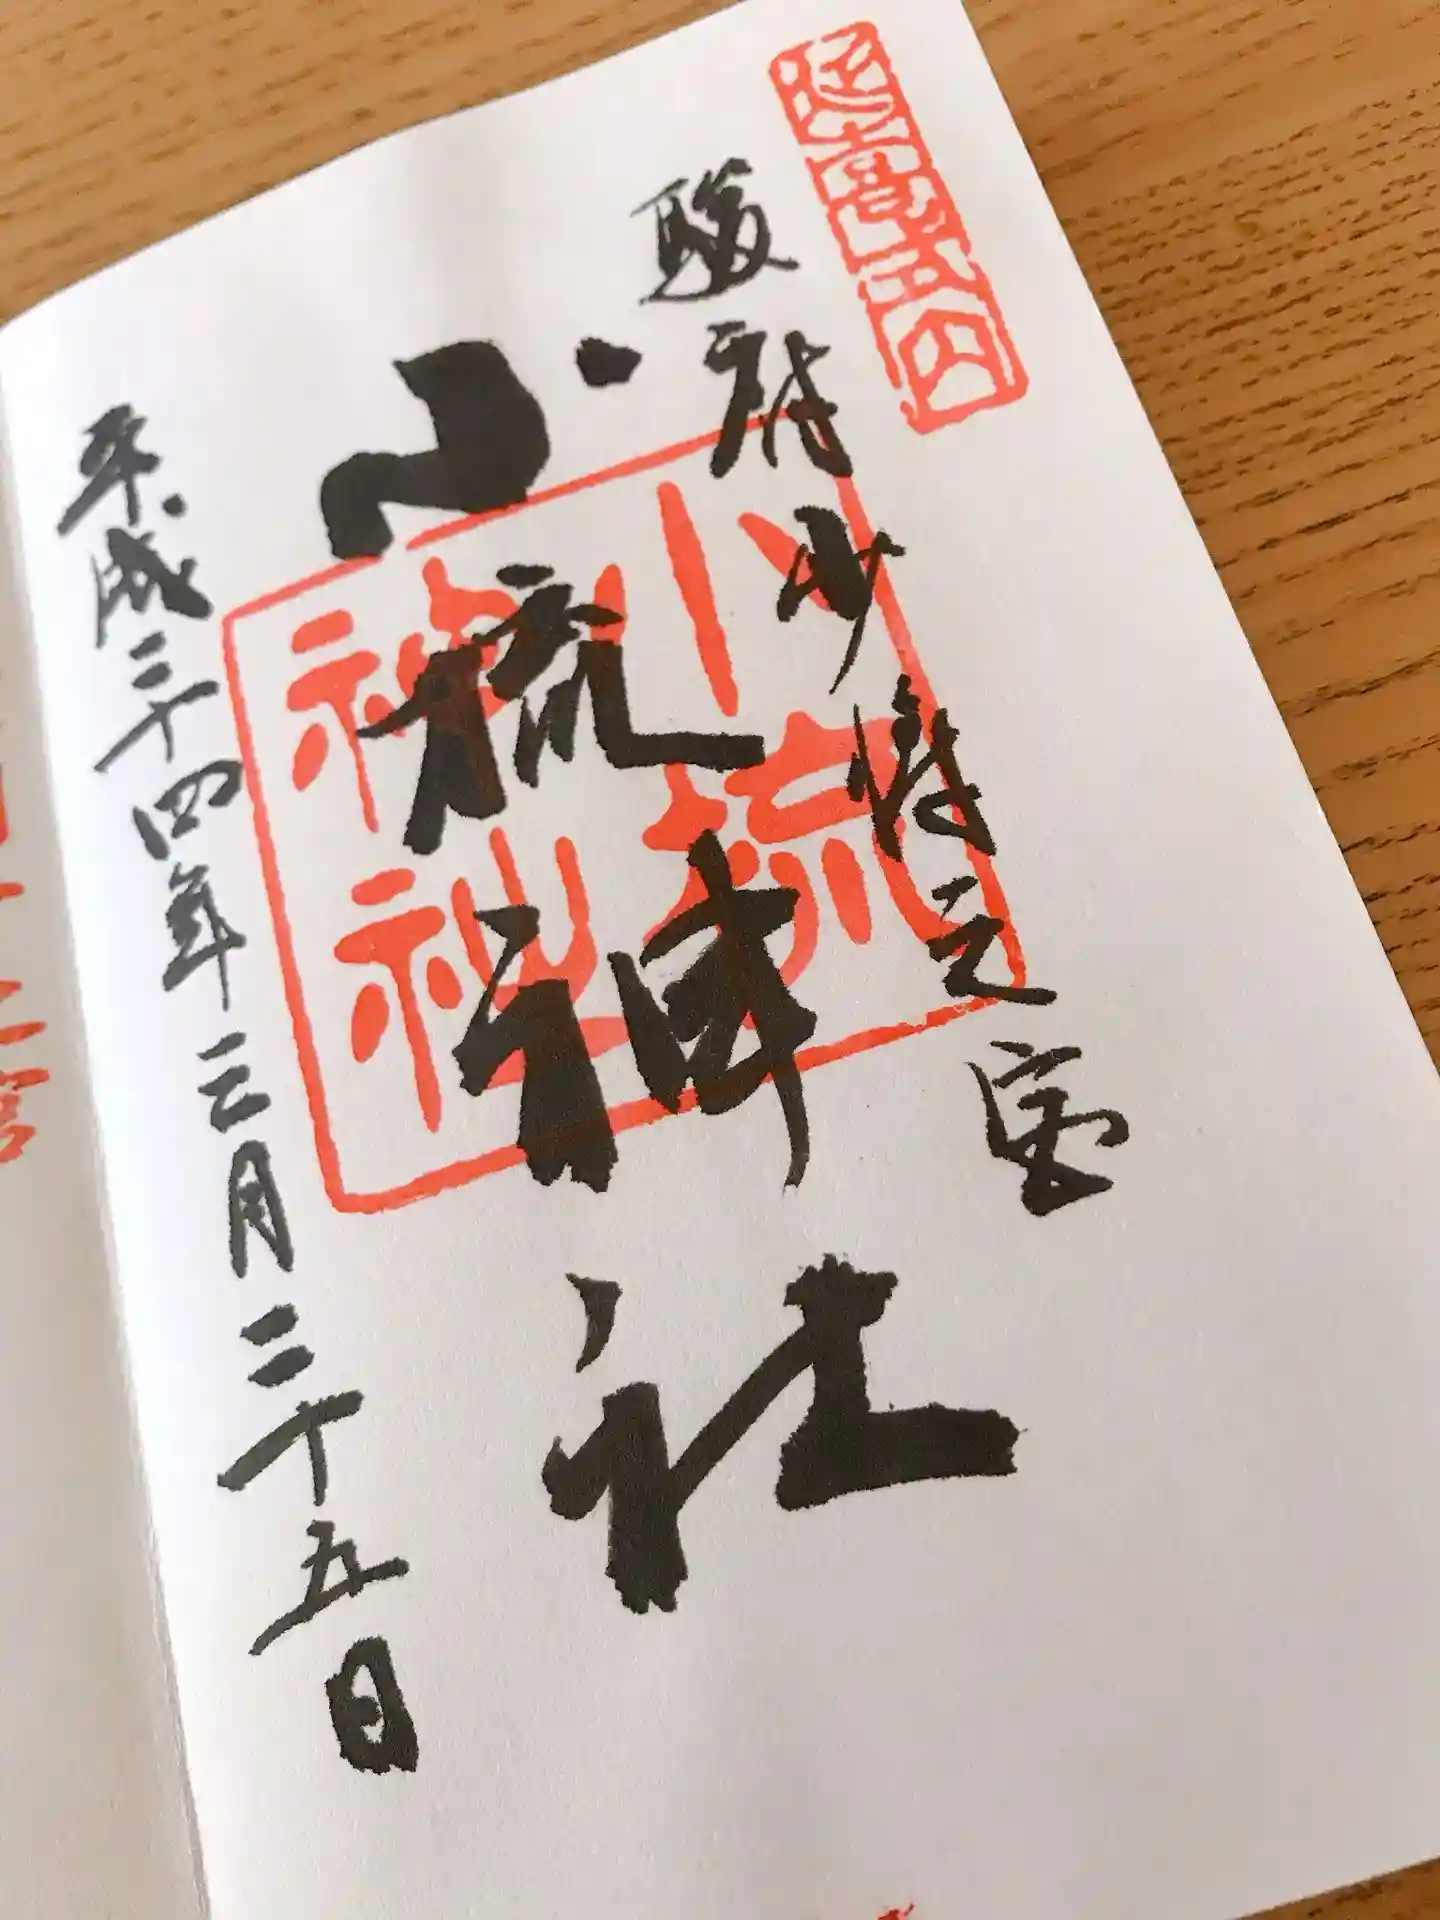 延喜式内
駿府少将之宮
小梳神社
小梳
神社
平成二十四年三月二十五日